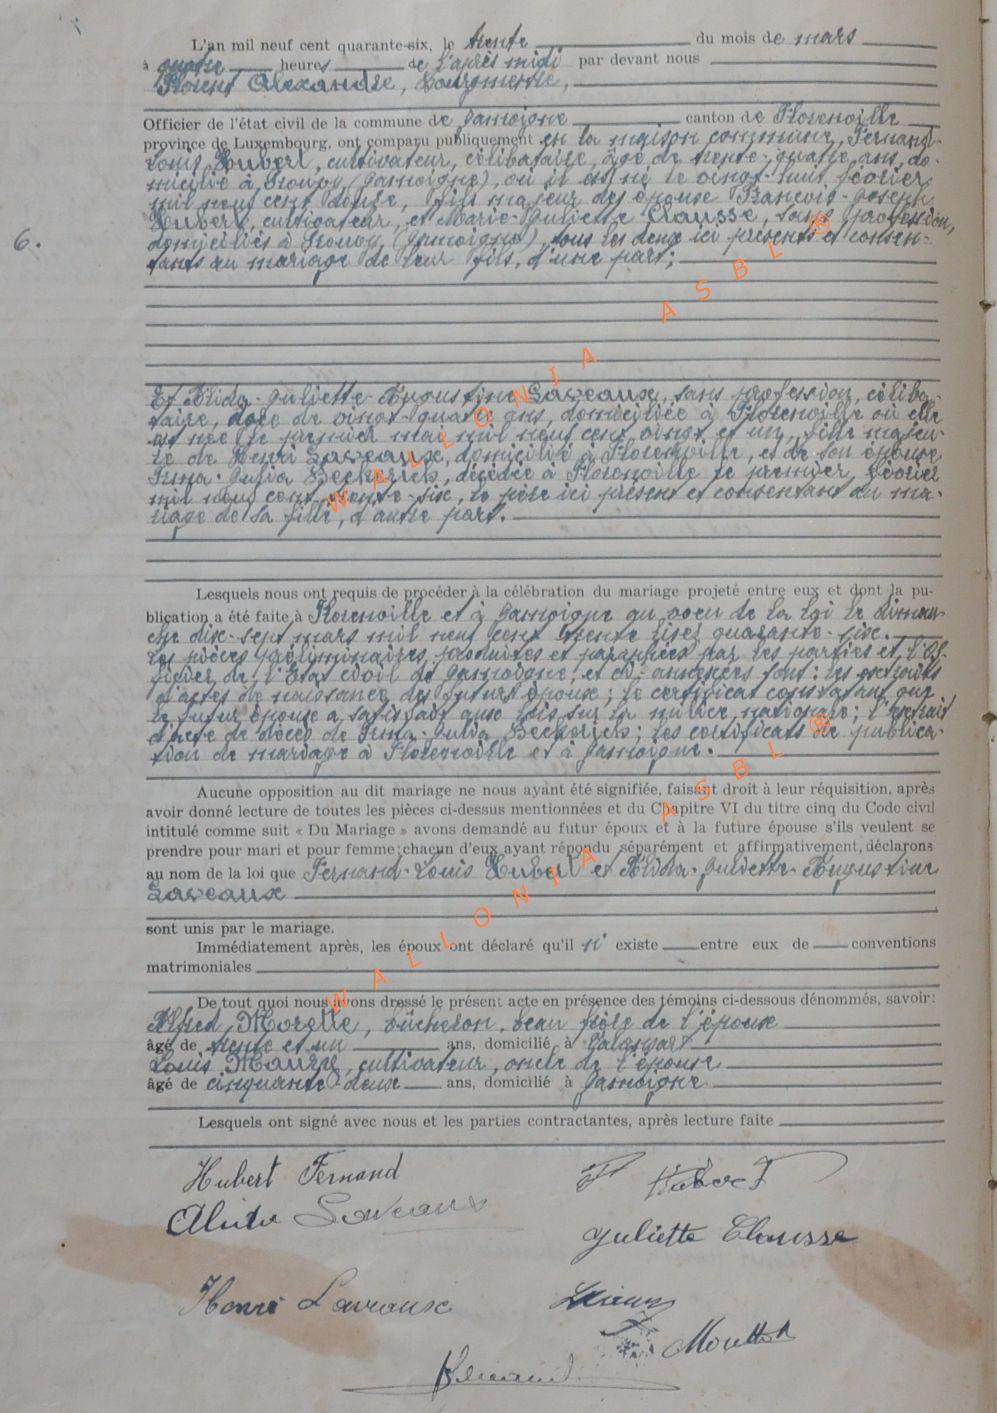 L'an mil neuf cent quarante-six, le trente du mois de mars
à quatre heures de l'après midi par devant nous
Florent Alexandre, Bourgmestre,
Officier de l'état civil de la commune de Jamoigne canton de Florenville
province de Luxembourg, ont comparu publiquement en la maison commune, Fernand-
Louis Hubert, cultivateur, célibataire, âgé de trente-quatre ans, do-
micilié à Prouvy (Jamoigne), où il est né le vingt-huit février
mil neuf cent douze, fils majeur des époux François-Joseph
Hubert, cultivateur, et Marie-Juliette Clausse, sans profession,
6.
domiciliés à Prouvy (Jamoigne), tous les deux ici présents et consen-
tants au mariage de leur fils, d'une part;
Et Alida-Juliette-Augustine Laveaux, sans profession, céliba-
taire, âgée de vingt-quatre ans, domiciliée à Florenville où elle
est née le premier mai mil neuf cent vingt et un, fille majeu-
re de Henri Laveaux, domicilié à Florenville, et de son épouse
Irma-Julia Beckerich, décédée à Florenville le premier février
mil neuf cent trente-six, le père ici présent et consentant au ma-
riage de sa fille, d'autre part.
Lesquels nous ont requis de procéder à la célébration du mariage projeté entre eux et dont la pu-
blication a été faite à Florenville et à Jamoigne au voeu de la loi le diman-
che dix-sept mars mil neuf cent trente lisez quarante-six.
Les pièces préliminaires, produites et paraphées par les parties et l'Of-
ficier de l'Etat civil de Jamoigne, et ci-annexées sont: les extraits
d'actes de naissance des futurs époux; le certificat constatant que
le futur époux a satisfait aux lois sur la milice nationale; l'extrait
d'acte de décès de Irma-Julia Beckerich; les certificats de publica-
tion de mariage à Florenville et à Jamoigne.
Aucune opposition au dit mariage ne nous ayant été signifiée, faisant droit à leur réquisition, après
avoir donné lecture de toutes les pièces ci-dessus mentionnées et du Chapitre VI du titre cinq du Code civil
intitulé comme suit « Du Mariage » avons demandé au futur époux et à la future épouse s'ils veulent se
prendre pour mari et pour femme; chacun d'eux ayant répondu séparément et affirmativement, déclarons
au nom de la loi que Fernand-Louis Hubert et Alida-Juliette-Augustine
Laveaux
sont unis par le mariage.
Immédiatement après, les époux ont déclaré qu'il n' existe entre eux de conventions
matrimoniales
De tout quoi nous avons dressé le présent acte en présence des témoins ci-dessous dénommés, savoir:
Alfred, bûcheron, beau frère de l'épouse
âgé de trente et un ans, domicilié à
Louis, cultivateur, oncle de l'épouse
âgé de cinquante-deux ans, domicilié à Jamoigne
Lesquels ont signé avec nous et les parties contractantes, après lecture faite
Hubert Fernand
F Hubert
Alida Laveaux
Juliette Clausse
Henri Laveaux
WALLONIA ASBL ®
WALLONIA ASBL ®